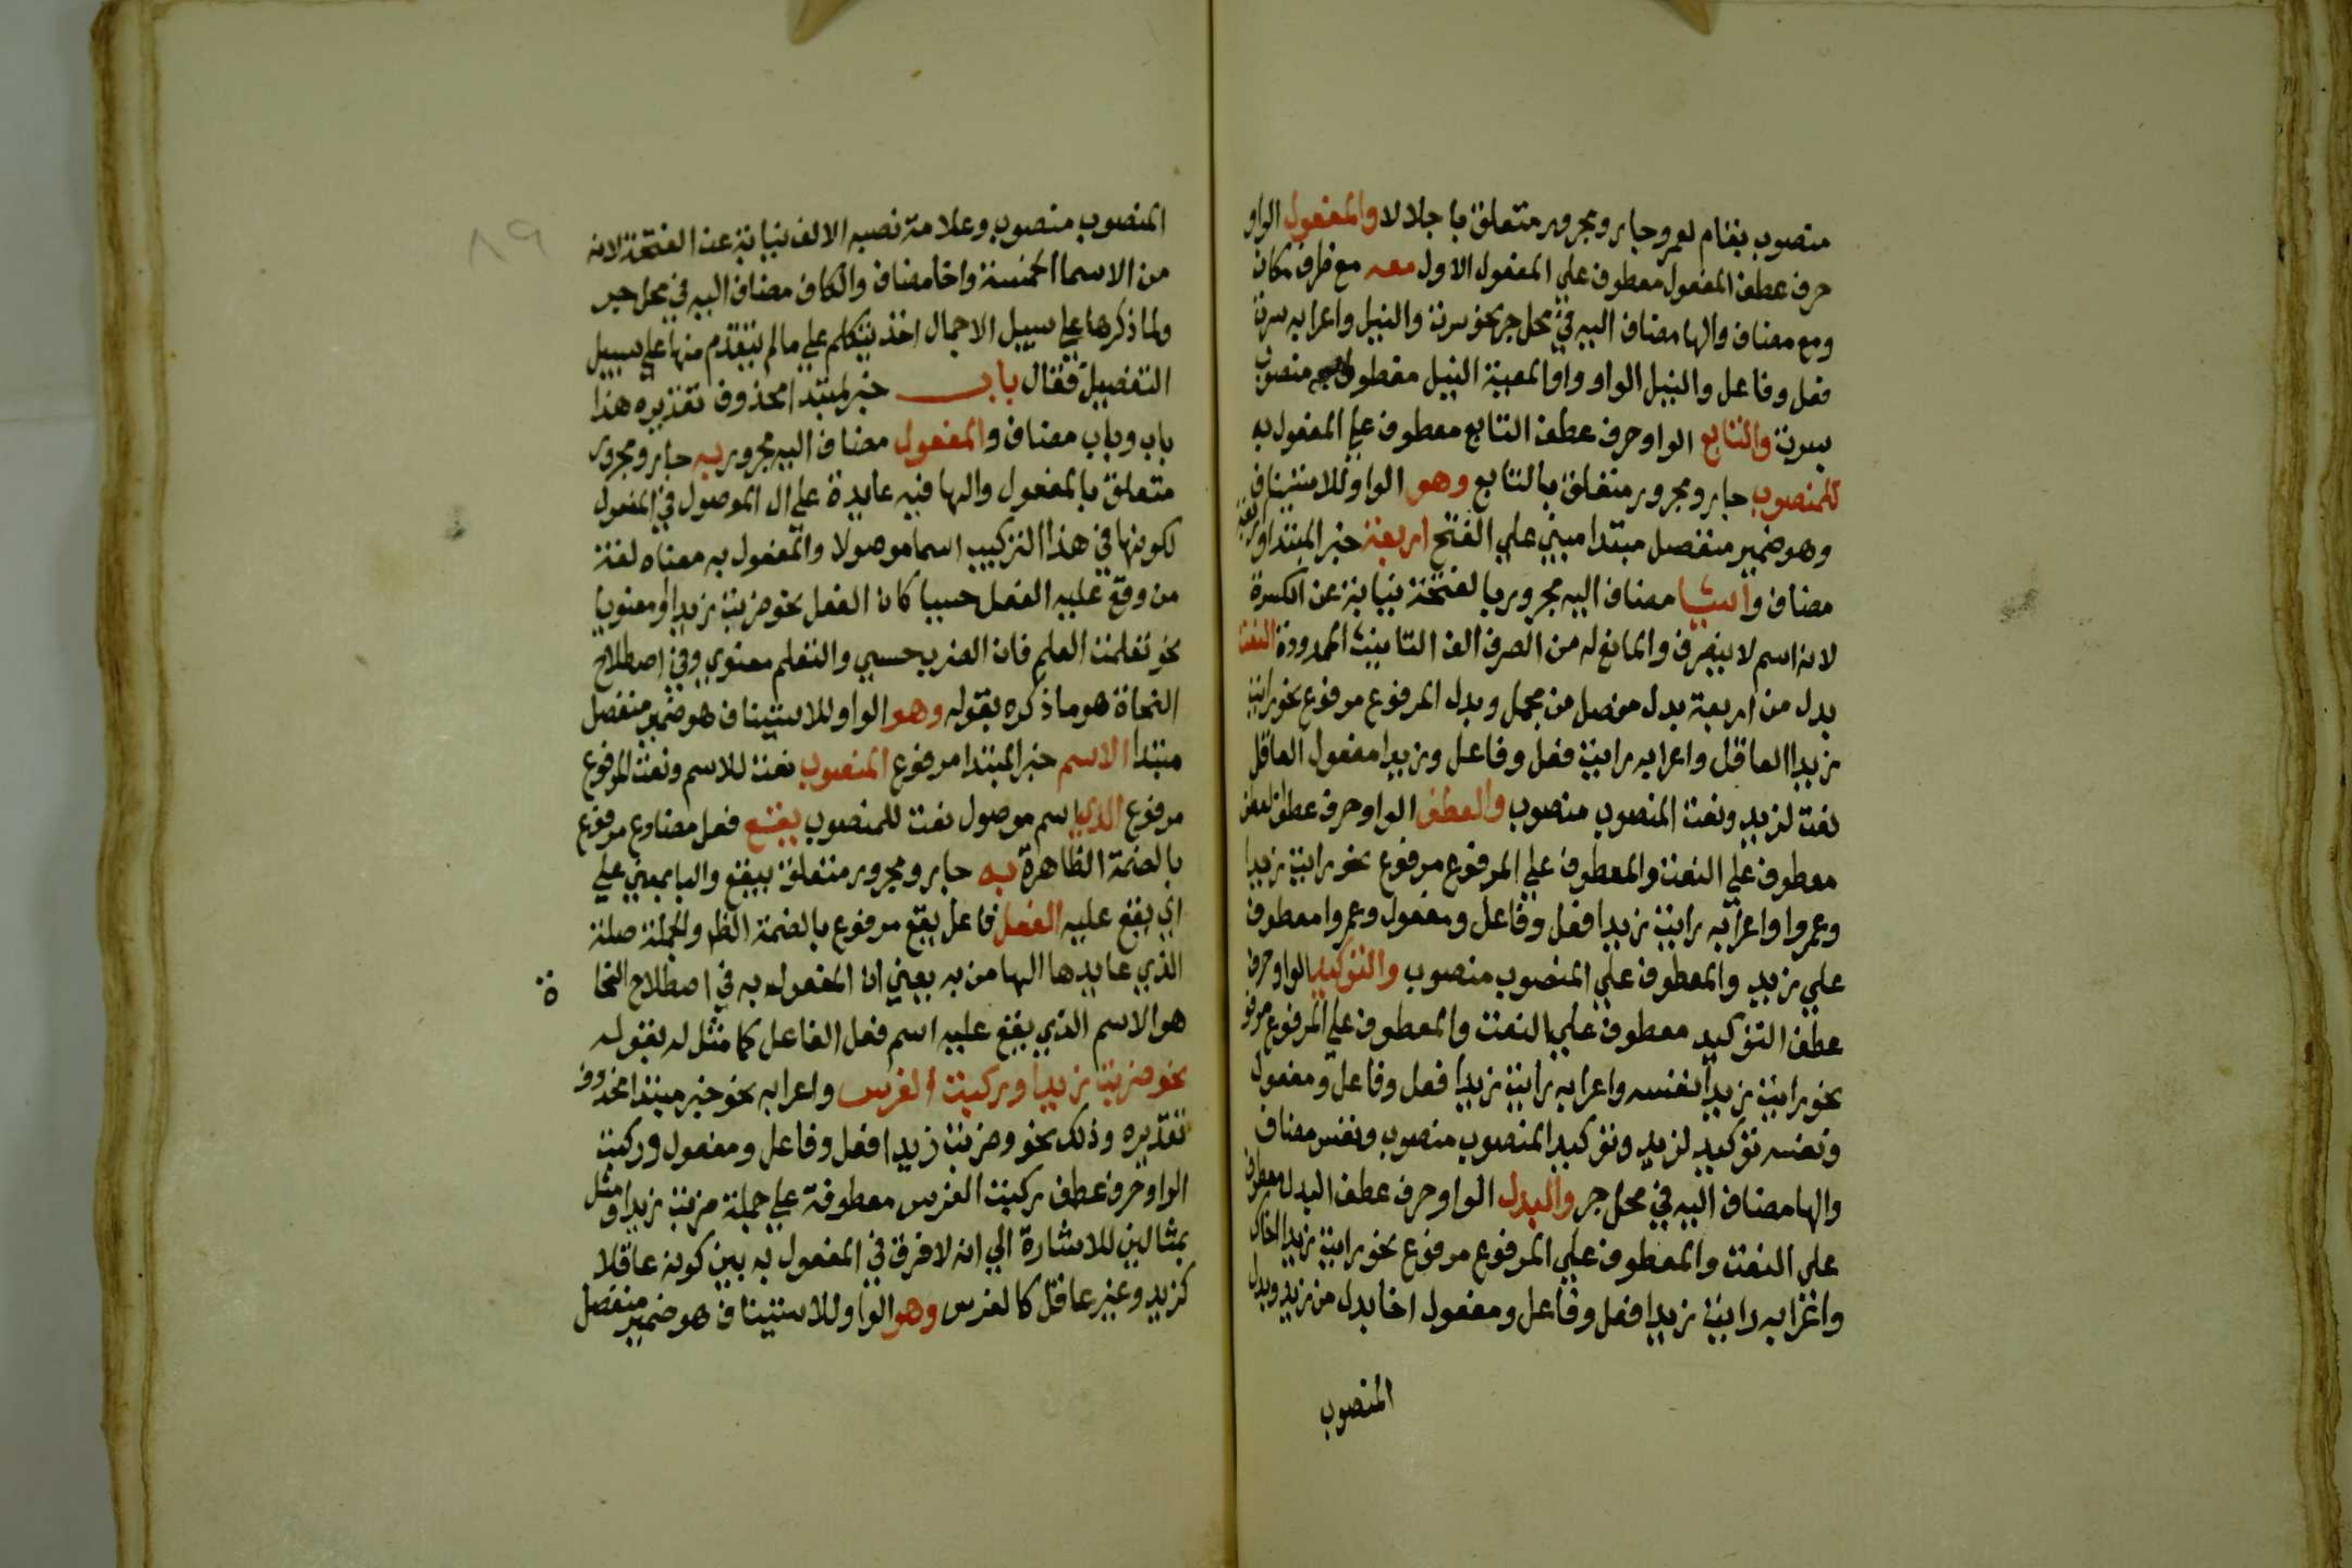 منصوب بقام لعمرو جار ومجرور متعلق باجلالا والمفعول الواو
حرف عطف المفعول معطوف علي المفعول الاول معه مع ظرف مكان
ومع مضاف والها مضاف اليه في محل جر نحو سرت والنيل واعرابه سرت
فعل وفاعل والنيل الواو واو المعية النيل مفعول معه منصوب
بسرت والتابع الواو حرف عطف التابع معطوف علي المفعول به
للمنصوب جار ومجرور متعلق بالتابع وهو الواو للاستيناف
وهو ضمير منفصل مبتدا مبني علي الفتح اربعة خبر المبتدا واربعة
مضاف واشيا مضاف اليه مجرور بالفتحة نيابة عن الكسرة
لانه اسم لا ينصرف والمانع له من الصرف الف التانيث الممدودة النعت
بدل من اربعة بدل مفصل من مجمل وبدل المرفوع مرفوع نحو رايت
زيدا العاقل واعرابه رايت فعل وفاعل وزيدا مفعول العاقل
نعت لزيد ونعت المنصوب منصوب والعطف الواو حرف عطف العطف
معطوف علي النعت والمعطوف علي المرفوع مرفوع نحو رايت زيدا
وعمروا واعرابه رايت زيدا فعل وفاعل ومفعول وعمروا معطوف
علي زيد والمعطوف علي المنصوب منصوب والتوكيد الواو حرف
عطف التوكيد معطوف علي النعت والمعطوف علي المرفوع مرفوع
نحو رايت زيدا نفسه واعرابه رايت زيدا فعل وفاعل ومفعول
ونفسه توكيد لزيد وتوكيد المنصوب منصوب ونفس مضاف
والها مضاف اليه في محل جر والبدل الواو حرف عطف البدل معطوف
علي النعت والمعطوف علي المرفوع مرفوع نحو رايت زيدا اخاك
واعرابه رايت زيدا فعل وفاعل ومفعول اخا بدل من زيد وبدل
المنصوب
٨٩
المنصوب منصوب وعلامة نصبه الالف نيابة عن الفتحة لانه
من الاسما الخمسة واخا مضاف والكاف مضاف اليه في محل جر
ولما ذكرها علي سبيل الاجمال اخذ يتكلم علي ما لم يتقدم منها علي سبيل
التفصيل فقال باب خبر لمبتدا محذوف تقديره هذا
باب وباب مضاف والمفعول مضاف اليه مجرور به جار ومجرور
متعلق بالمفعول والها فيه عايدة علي ال الموصول في المفعول
لكونها في هذا التركيب اسما موصولا والمفعول به معناه لغة
من وقع عليه الفعل حسيا كان الفعل نحو ضربت زيدا او معنويا
نحو تعلمت العلم فان الضرب حسي والتعلم معنوي وفي اصطلاح
النحاة هو ما ذكره بقوله وهو الواو للاستيناف هو ضمير منفصل
مبتدا الاسم خبر المبتدا مرفوع المنصوب نعت للاسم ونعت المرفوع
مرفوع الذي اسم موصول نعت للمنصوب يقع فعل مضارع مرفوع
بالضمة الظاهرة به جار ومجرور متعلق بيقع والبا بمعني علي
اي يقع عليه الفعل فاعل يقع مرفوع بالضمة الظا والجملة صلة
الذي عايدها الها من به يعني ان المفعول به في اصطلاح النحا ة
هو الاسم الذي يقع عليه اسم فعل الفاعل كما مثل له بقوله
نحو ضربت زيدا وركبت الفرس واعرابه نحو خبر مبتدا محذوف
تقديره وذلك نحو وضربت زيدا فعل وفاعل ومفعول وركبت
الواو حرف عطف ركبت الفرس معطوفة علي جملة ضربت زيدا ومثل
بمثالين للاشارة الي انه لا فرق في المفعول به بين كونه عاقلا
كزيد وغير عاقل كالفرس وهو الواو للاستيناف هو ضمير منفصل